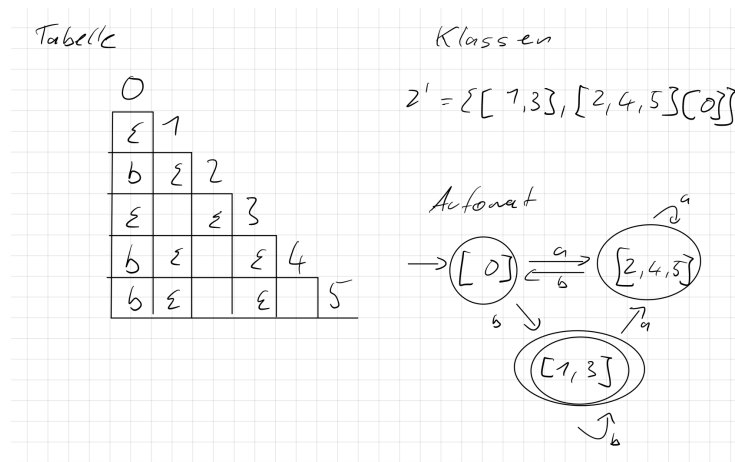 Tabelle
0
ε 1
b ε 2
ε ε 3
b ε ε 4
b ε ε 5
Klassen
z' = {[1,3], [2,4,5][0]}
Automat
a
[0] a [2,4,5]
b
b a
[1,3]
b